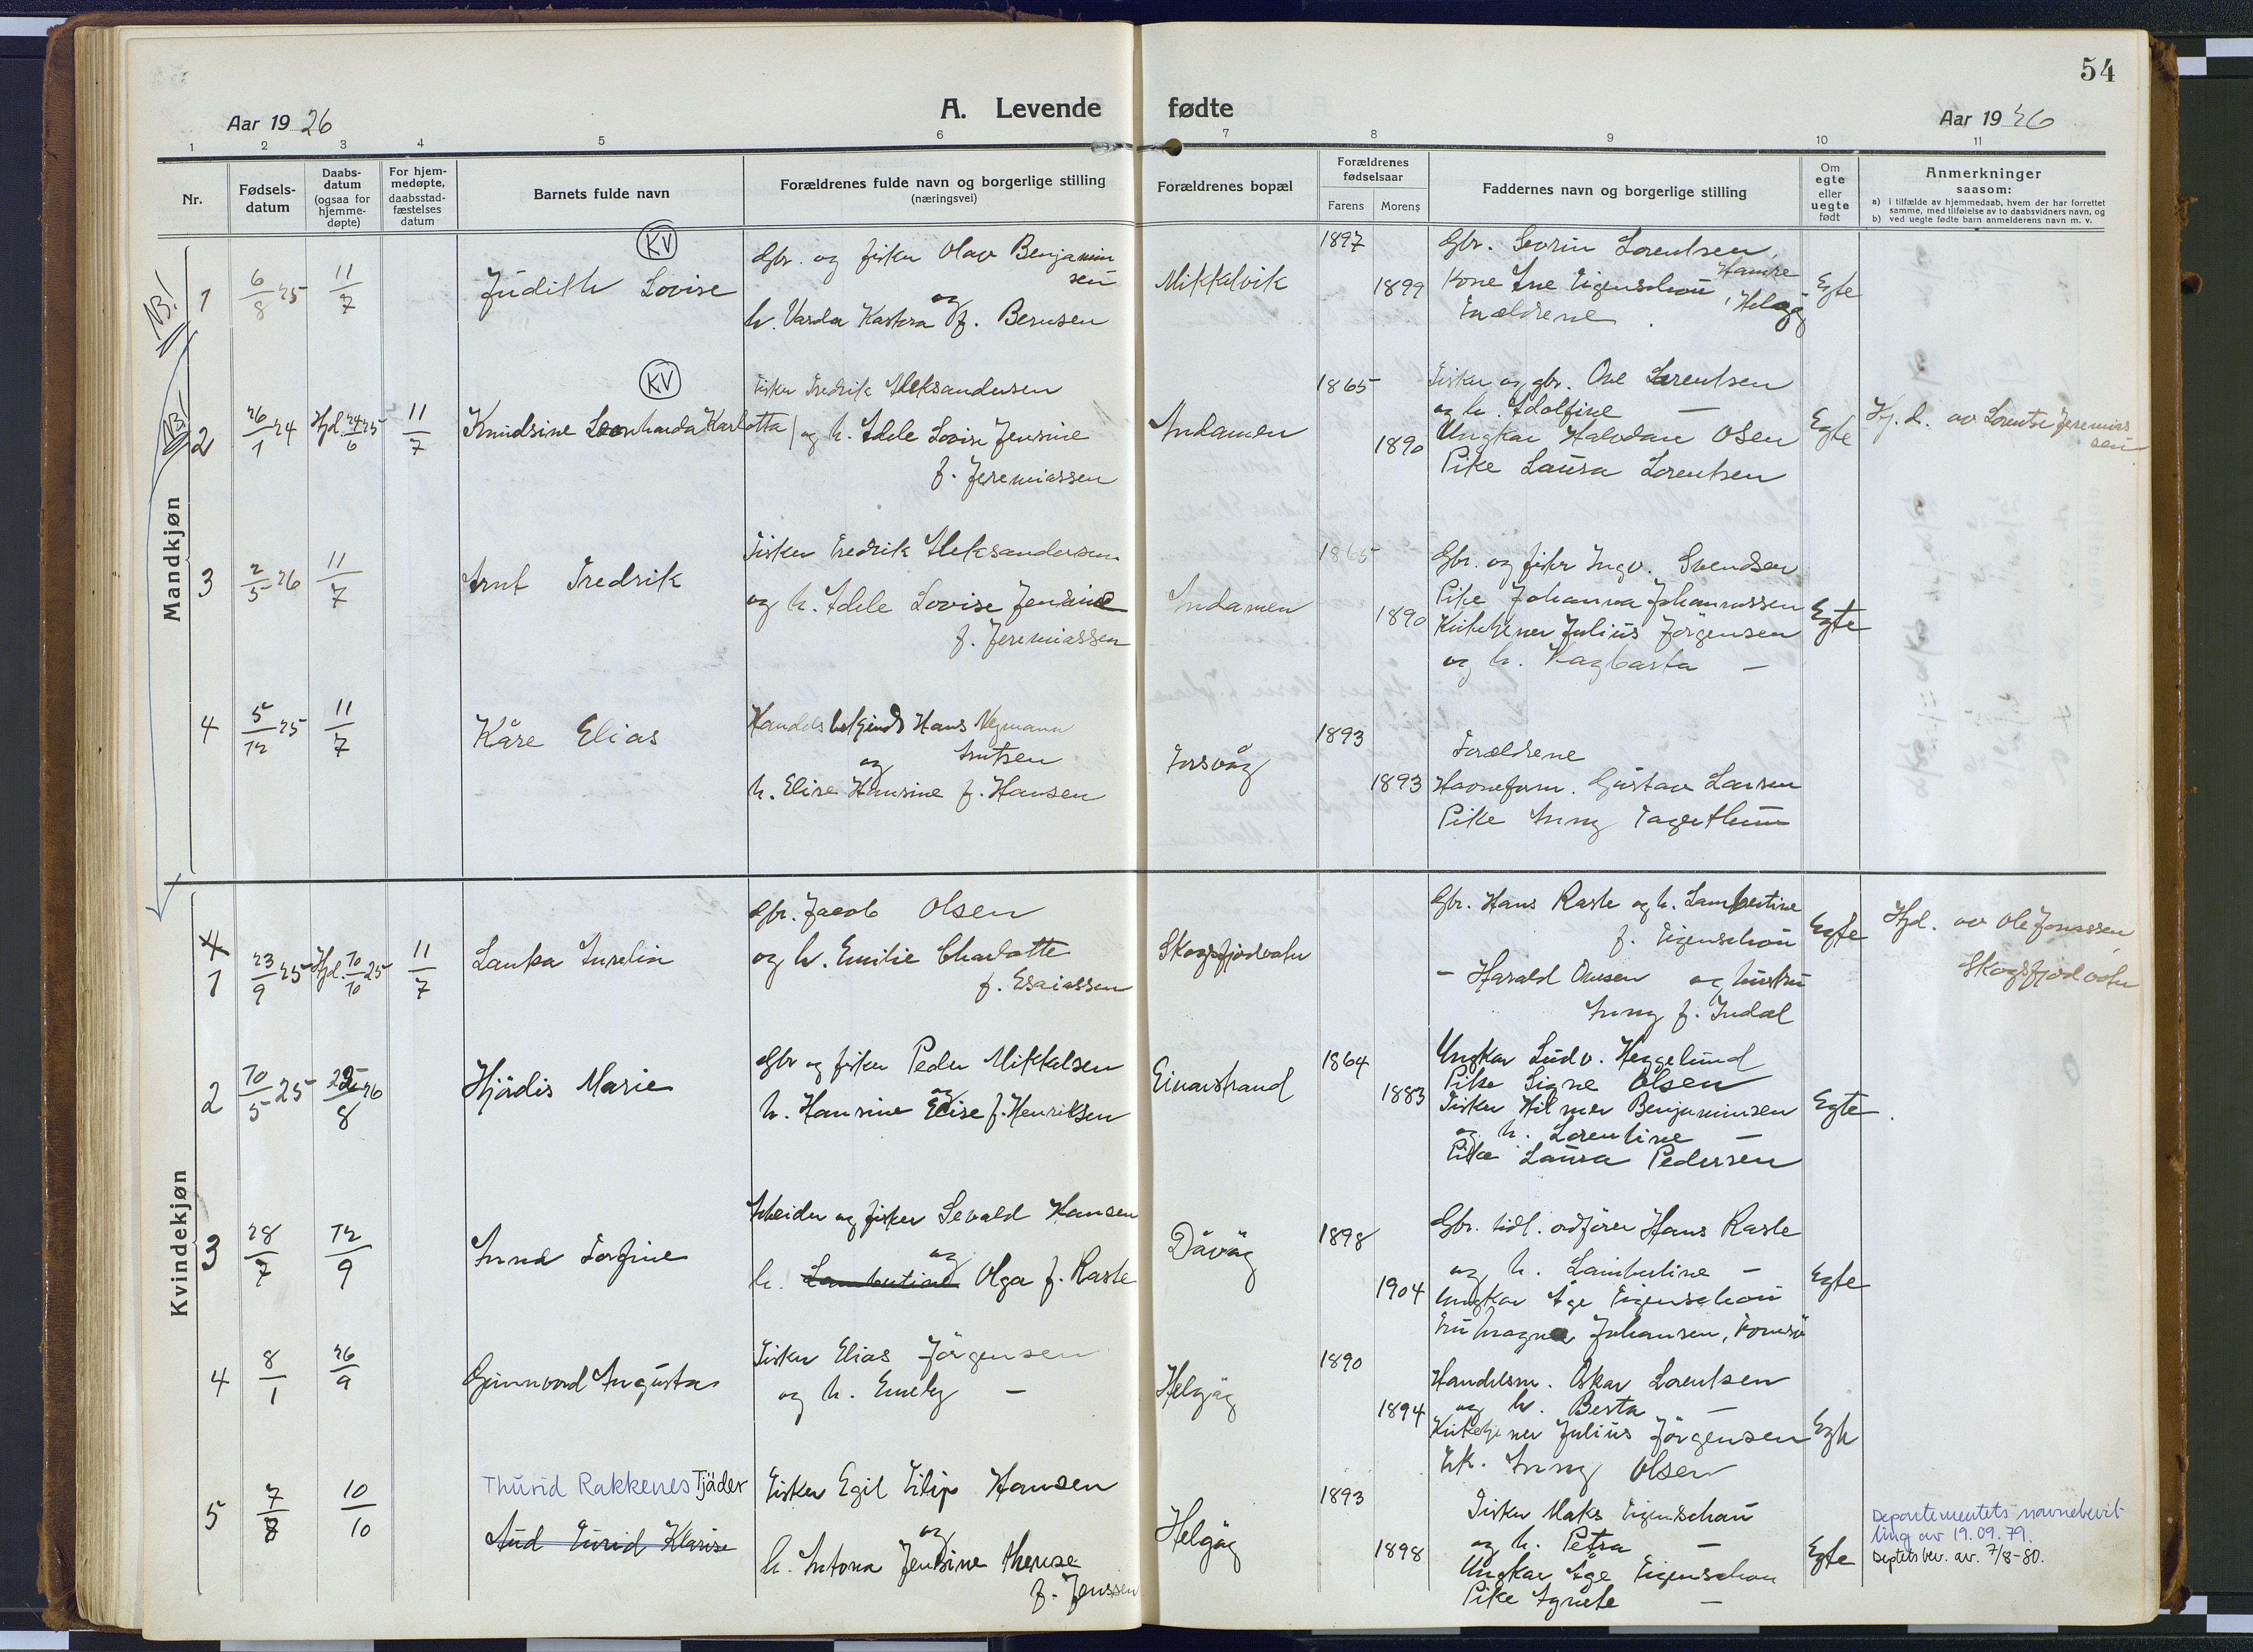 54
Aar 1926
A. Levende fødte
Aar 1926
1 2 3 4 5 6 7 8 9 10 11
Nr.
Fødsels-
datum
Daabs-
datum
(ogsaa for
hjemme-
døpte)
For hjem-
medøpte,
daabsstad-
fæstelses
datum
Barnets fulde navn
Forældrenes fulde navn og borgerlige stilling
(næringsvei)
Forældrenes bopæl
Forældrenes
fødselsaar
Farens
Morens
Faddernes navn og borgerlige stilling
Om
egte
eller
uegte
født
Anmerkninger
saasom:
a) i tilfælde av hjemmedaab, hvem der har forrettet
samme, med tilføielse av to daabsvidners navn, og
b) ved uegte fødte barn anmelderens navn m. v.
Mandkjøn
NB!
1
6/8 25
11/7
KV
Judith Lovise
Gbr. og fisker Olav Benjamin
sen
og
h. Varda Kastora f. Bernsen
Mikkelvik
1897
1899
Gbr. Sevrin Lorentsen,
Kone Ine Eigenschou, Hamre
Helgøy
Forældrene
Egte
NB!
2
26/1 24
Hjd. 24/6 25
11/7
KV
Knudsine Leonharda Karlotta
Fisker Fredrik Aleksandersen
og h. Adele Lovise Jensine
f. Jeremiassen
Andamen
1865
1890
Fisker og gbr. Ove Lorentsen
og h. Adolfine —
Ungkar Halvdan Olsen
Pike Laura Lorentsen
Egte
Hj. d. av Lorents Jeremias
sen
3
2/5 26
11/7
Arnt Fredrik
Fisker Fredrik Aleksandersen
og h. Adele Lovise Jensine
f. Jeremiassen
Andamen
1865
1890
Gbr. og fisker Ingv. Svendsen
Pike Johanna Johannessen
Kirketjener Julius Jørgensen
og h. Dagbarta —
Egte
4
5/12 25
11/7
Kåre Elias
Handelsbetjendt Hans Nymann
Arntsen
og
h. Elise Hansine f. Hansen
Torsvåg
1893
1893
Forældrene
Havneform. Gustav Larsen
Pike Anny Fagerthun
Kvindekjøn
1
23/9 25
Hjd. 10/10 25
11/7
Lauka Aurelia
Gbr. Jacob Olsen
og h. Emilie Charlotte
f. Esaiassen
Skogsfjordvatn
Gbr. Hans Raste og h. Lambertine
f. Eigenschou
— Harald Ovesen og hustru
Anny f. Indal
Egte
Hjd. av Ole Jonassen,
Skogsfjordvatn
2
10/5 25
22/8 26
Hjördis Marie
Gbr og fisker Peder Mikkalsen
og
h. Hansine Elise f. Henriksen
Einarstrand
1864
1883
Ungkar Ludv. Heggelund
Pike Signe Olsen
Fisker Hilmer Benjaminsen
og h. Lorentine —
Pike Laura Pedersen
Egte
3
28/7
12/9
Anna Torfine
Arbeider og fisker Sevald Hansen
og
h. Lambertine Olga f. Raste
Dåvåg
1898
1904
Gbr. tidl. ordfører Hans Raste
og h. Lambertine —
Ungkar Åge Eigenschou
Fru Magna Johansen, Tromsø
Egte
4
8/1
26/9
Gunnvord Augusta
Fisker Elias Jørgensen
og h. Emely —
Helgøy
1890
1894
Handelsm. Oskar Lorentsen
og h. Berta —
Kirketjener Julius Jørgensen
Frk. Anny Olsen
Egte
5
7/8
10/10
Thurid Rakkenes Tjäder
Aud Turid Klarise
Fisker Egil Filip Hansen
og
h. Antona Jensine Therese
f. Jenssen
Helgøy
1893
1898
Fisker Maks Eigenschou
og h. Petra —
Ungkar Åge Eigenschou
Pike Agnete —
Egte
Departementets navnebevil-
ling av 19.09.79.
Deptets bev. av. 7/8-80.